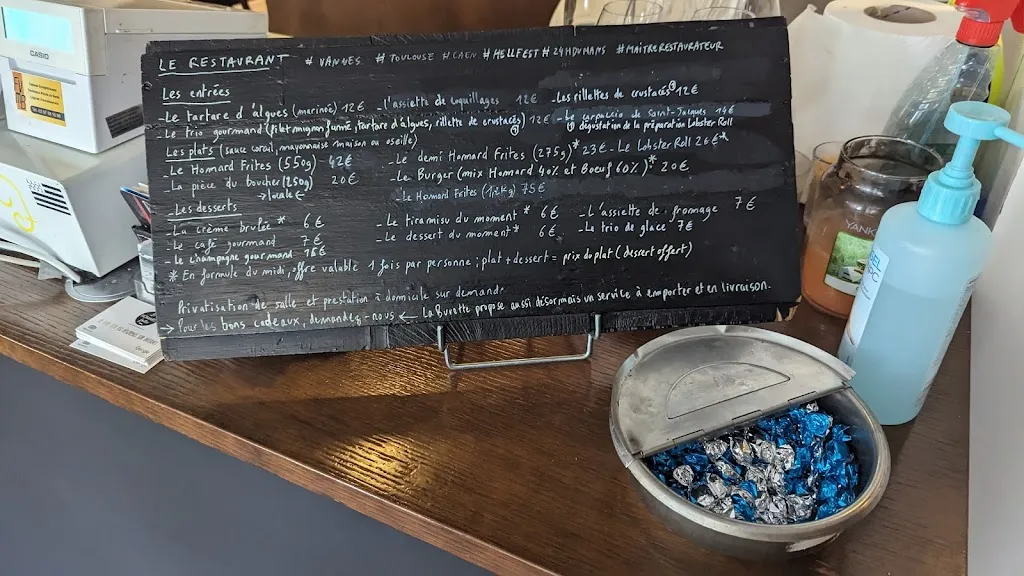 LE RESTAURANT #VANNES #TOULOUSE #CAEN #HELLFEST #24HDUMANS #MAITRERESTAURATEUR
Les entrées
-Le tartare d'algues (mariné) 12€ -L'assiette de coquillages 12€ -Les rillettes de crustacés① 12€
-Le trio gourmand (filet mignon fumé, tartare d'algues, rillette de crustacés) 12€ -Le carpaccio de Saint-Jacques 14€
① dégustation de la préparation Lobster Roll
Les plats (sauce corail, mayonnaise maison ou oseille)
-Le Homard Frites (550g) 42€ -Le demi Homard Frites (275g)* 23€ -Le Lobster Roll 26€*
-La pièce du boucher (250g) 20€ -Le Burger (mix Homard 40% et Boeuf 60%)* 20€
→ locale
-Le Homard Frites (1,2kg) 75€
-Les desserts
-La crème brulée * 6€ -Le tiramisu du moment * 6€ -L'assiette de fromage 7€
-Le café gourmand 7€ -Le dessert du moment* 6€ -Le trio de glace 7€
-Le champagne gourmand 16€
* En formule du midi, offre valable 1 fois par personne ; plat + dessert = prix du plat (dessert offert)
Privatisation de salle et prestation à domicile sur demand
→ Pour les bons cadeaux, demandez-nous ← La Buvette propose aussi désormais un service à emporter et en livraison.
CASIO
YANK